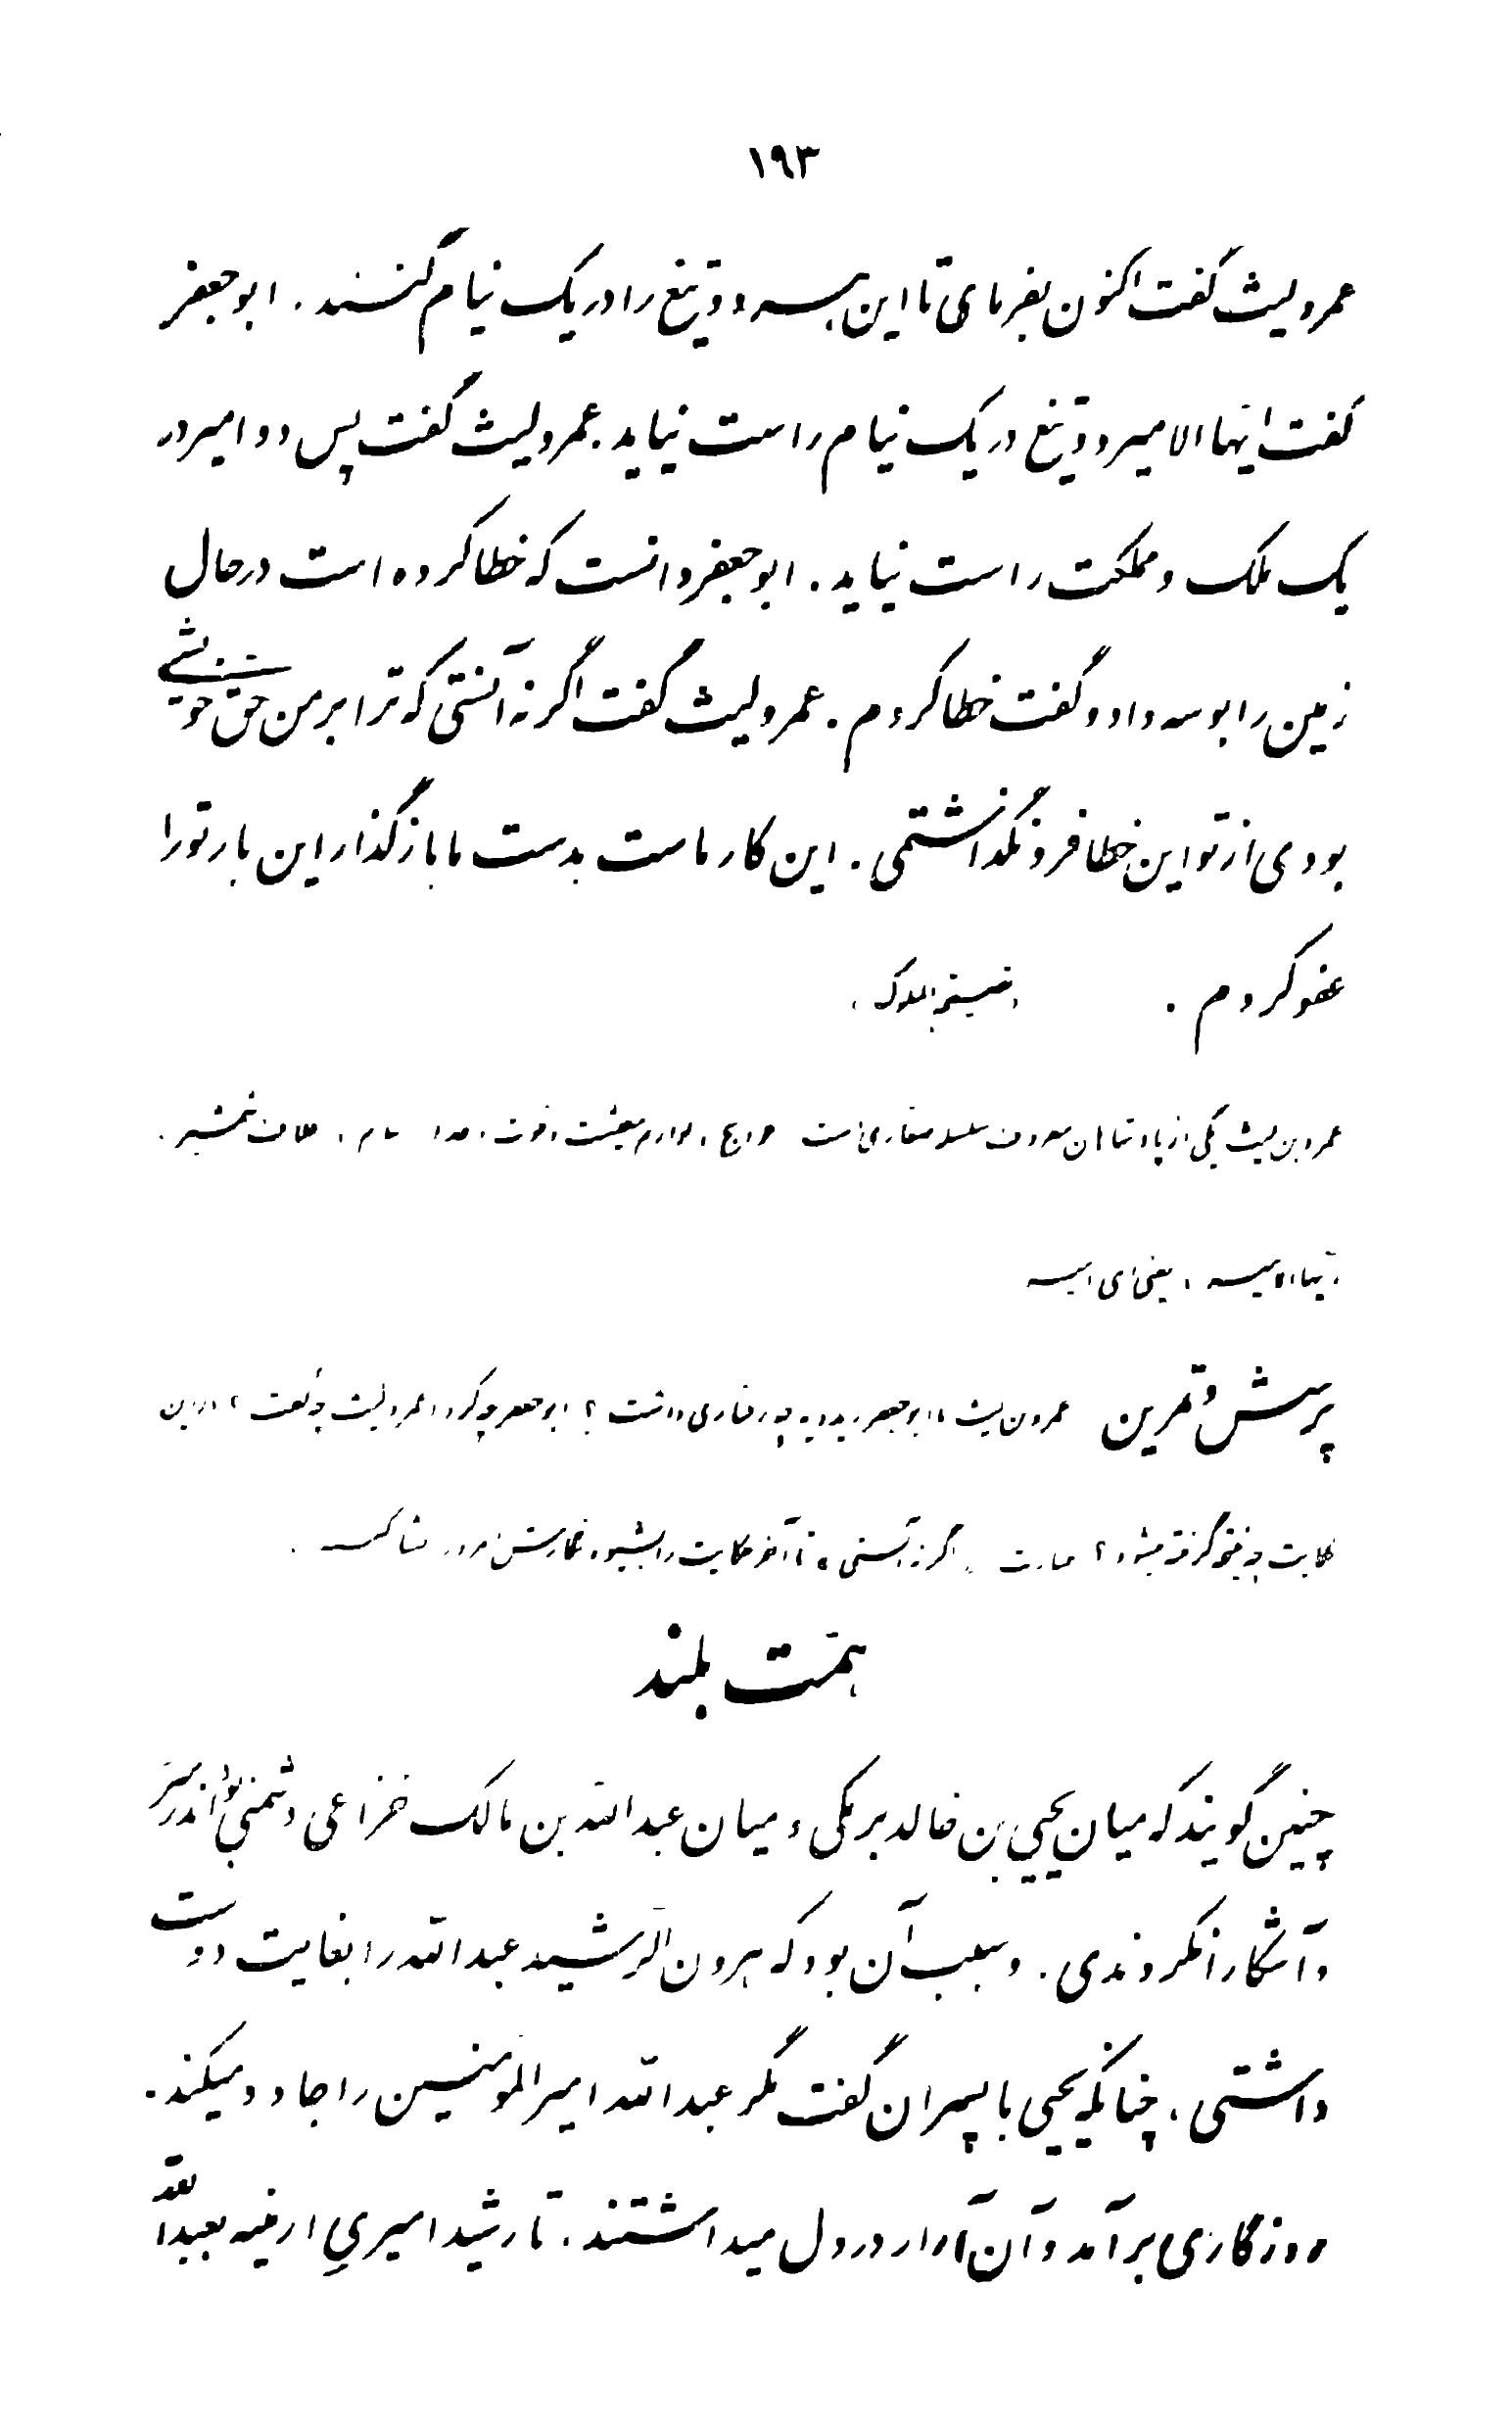 ۱۹۳
عمرو لیث گفت اکنون بفرمای تا این هر دو تیغ را در یک نیام کنند. ابوجعفر
گفت ایها الامیر دو تیغ در یک نیام راست نیاید. عمرو لیث گفت پس دو امیر در
یک ملک و مملکت راست نیاید. ابوجعفر دانست که خطا کرده است در حال
زمین را بوسه داد و گفت خطا کردم. عمرو لیث گفت اگر نه آنستی که ترا بر من حق خویشی
بودی از تو این خطا فرو نگذاشتمی. این کار ماست بدست ما باز گذار این بار تو را
عفو کردم. «نصیحة الملوک»
عمرو بن لیث یکی از پادشاهان معروف سلسله صفاری است حوایج، لوازم معیشت، قوت، غذا نیام، غلاف شمشیر.
ایها الامیر، یعنی ای امیر
پرسش و تمرین عمرو بن لیث با ابوجعفر زیدویه چه رفتاری داشت؟ ابوجعفر چه کرد و عمرو لیث چه گفت؟ از این
حکایت چه نتیجه گرفته میشود؟ عبارت «اگر نه آنستی» تا آخر حکایت را بشیوه نگارش امروز انشا کنید.
همّت بلند
چنین گویند که میان یحیی بن خالد برمکی و میان عبدالله بن مالک خزاعی دشمنی بود اندر سرّ
و آشکارا نکردندی. و سبب آن بود که هرون الرشید عبدالله را بغایت دوست
داشتی، چنانکه یحیی با پسران گفت مگر عبدالله امیرالمؤمنین را جادو میکند.
روزگاری برآمد و آن آزار در دل میداشتند. تا رشید امیری ارمنیه بعبدالله